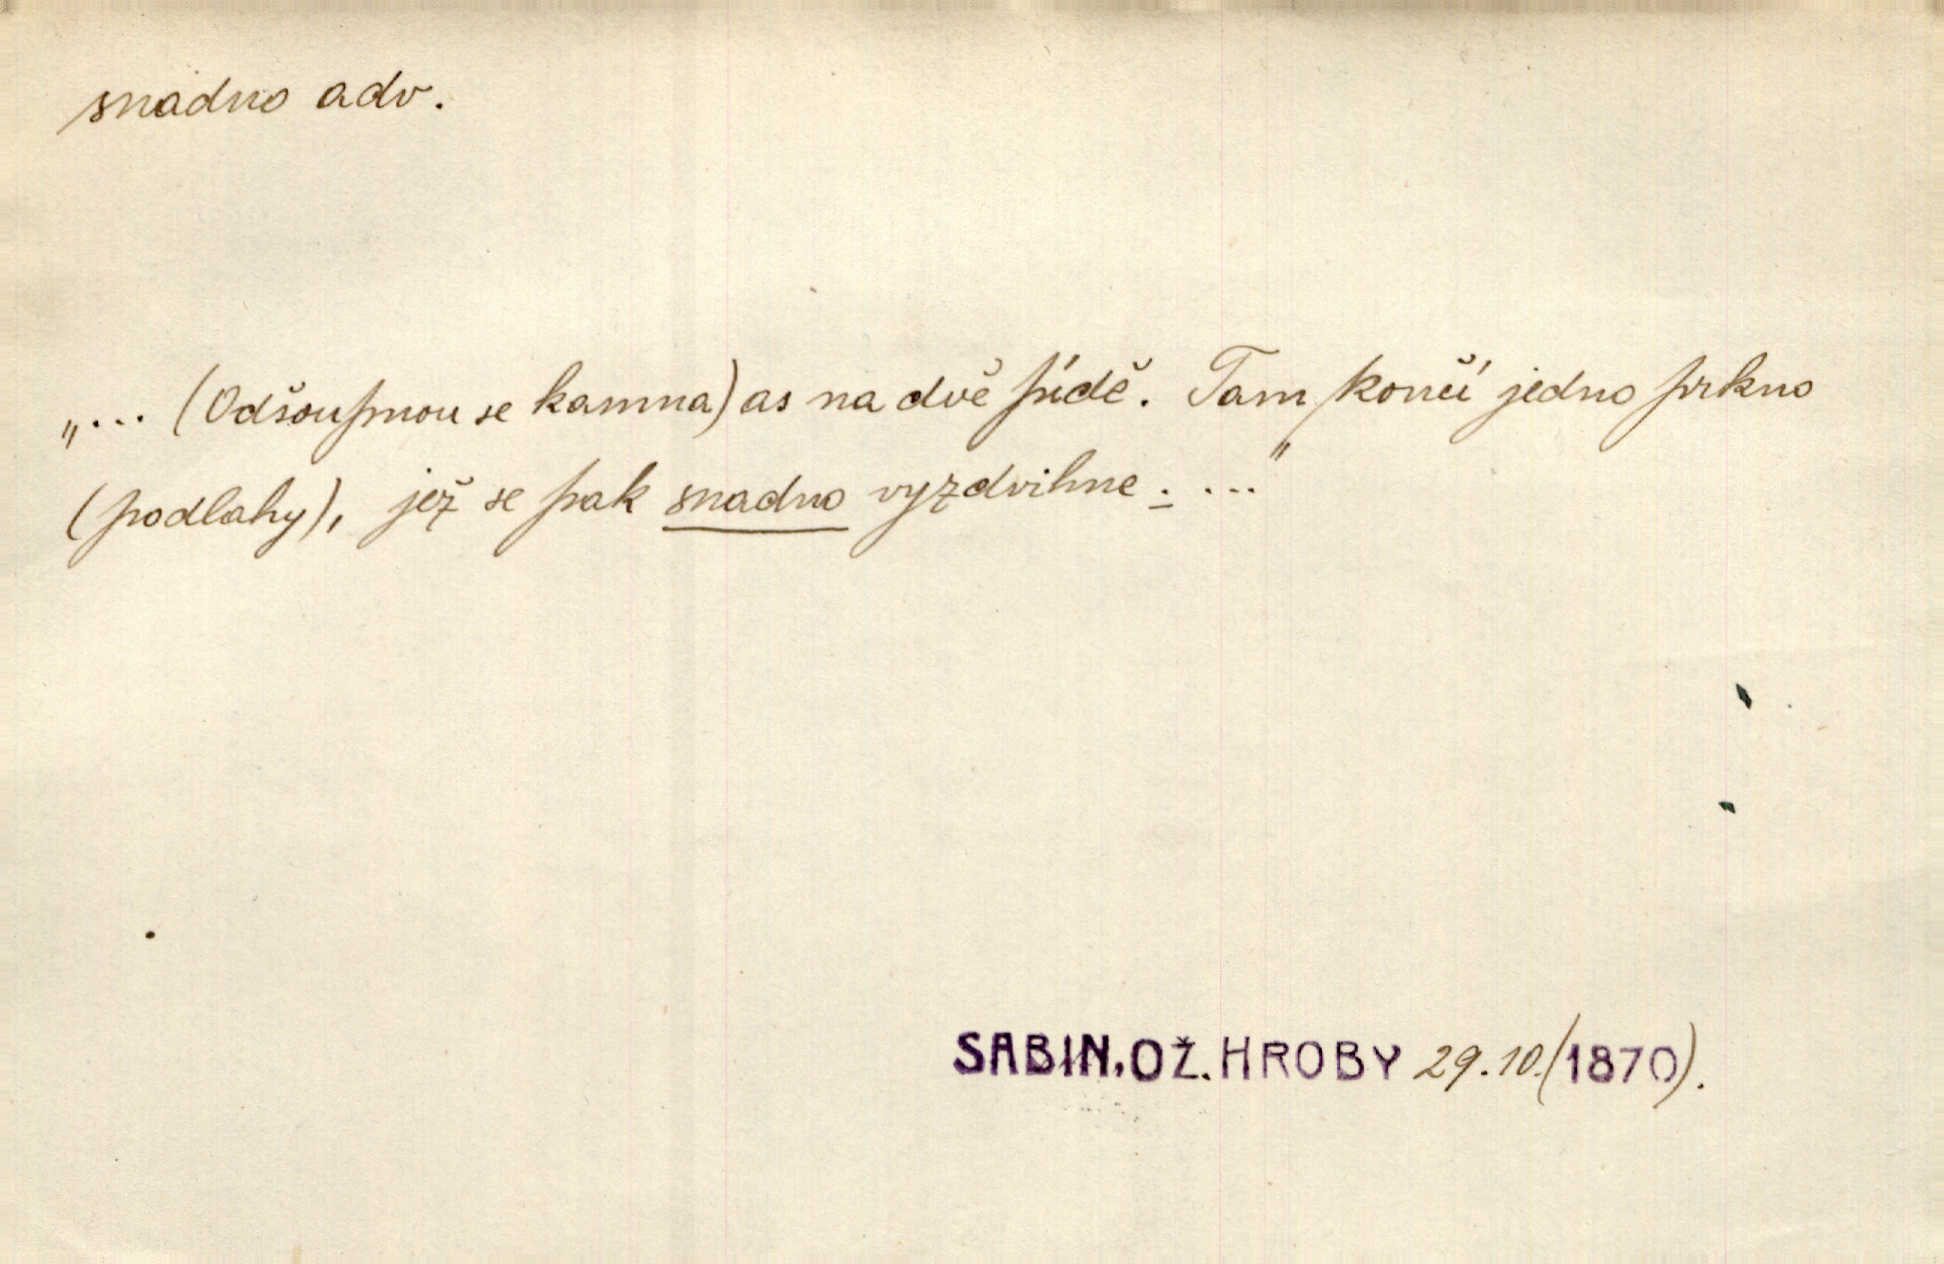 snadno adv.
„... (Odšoupnou se kamna) as na dvě pídě. Tam končí jedno prkno
(podlahy), jež se pak snadno vyzdvihne. ..."
SABIN. OŽ. HROBY 29.10. (1870).